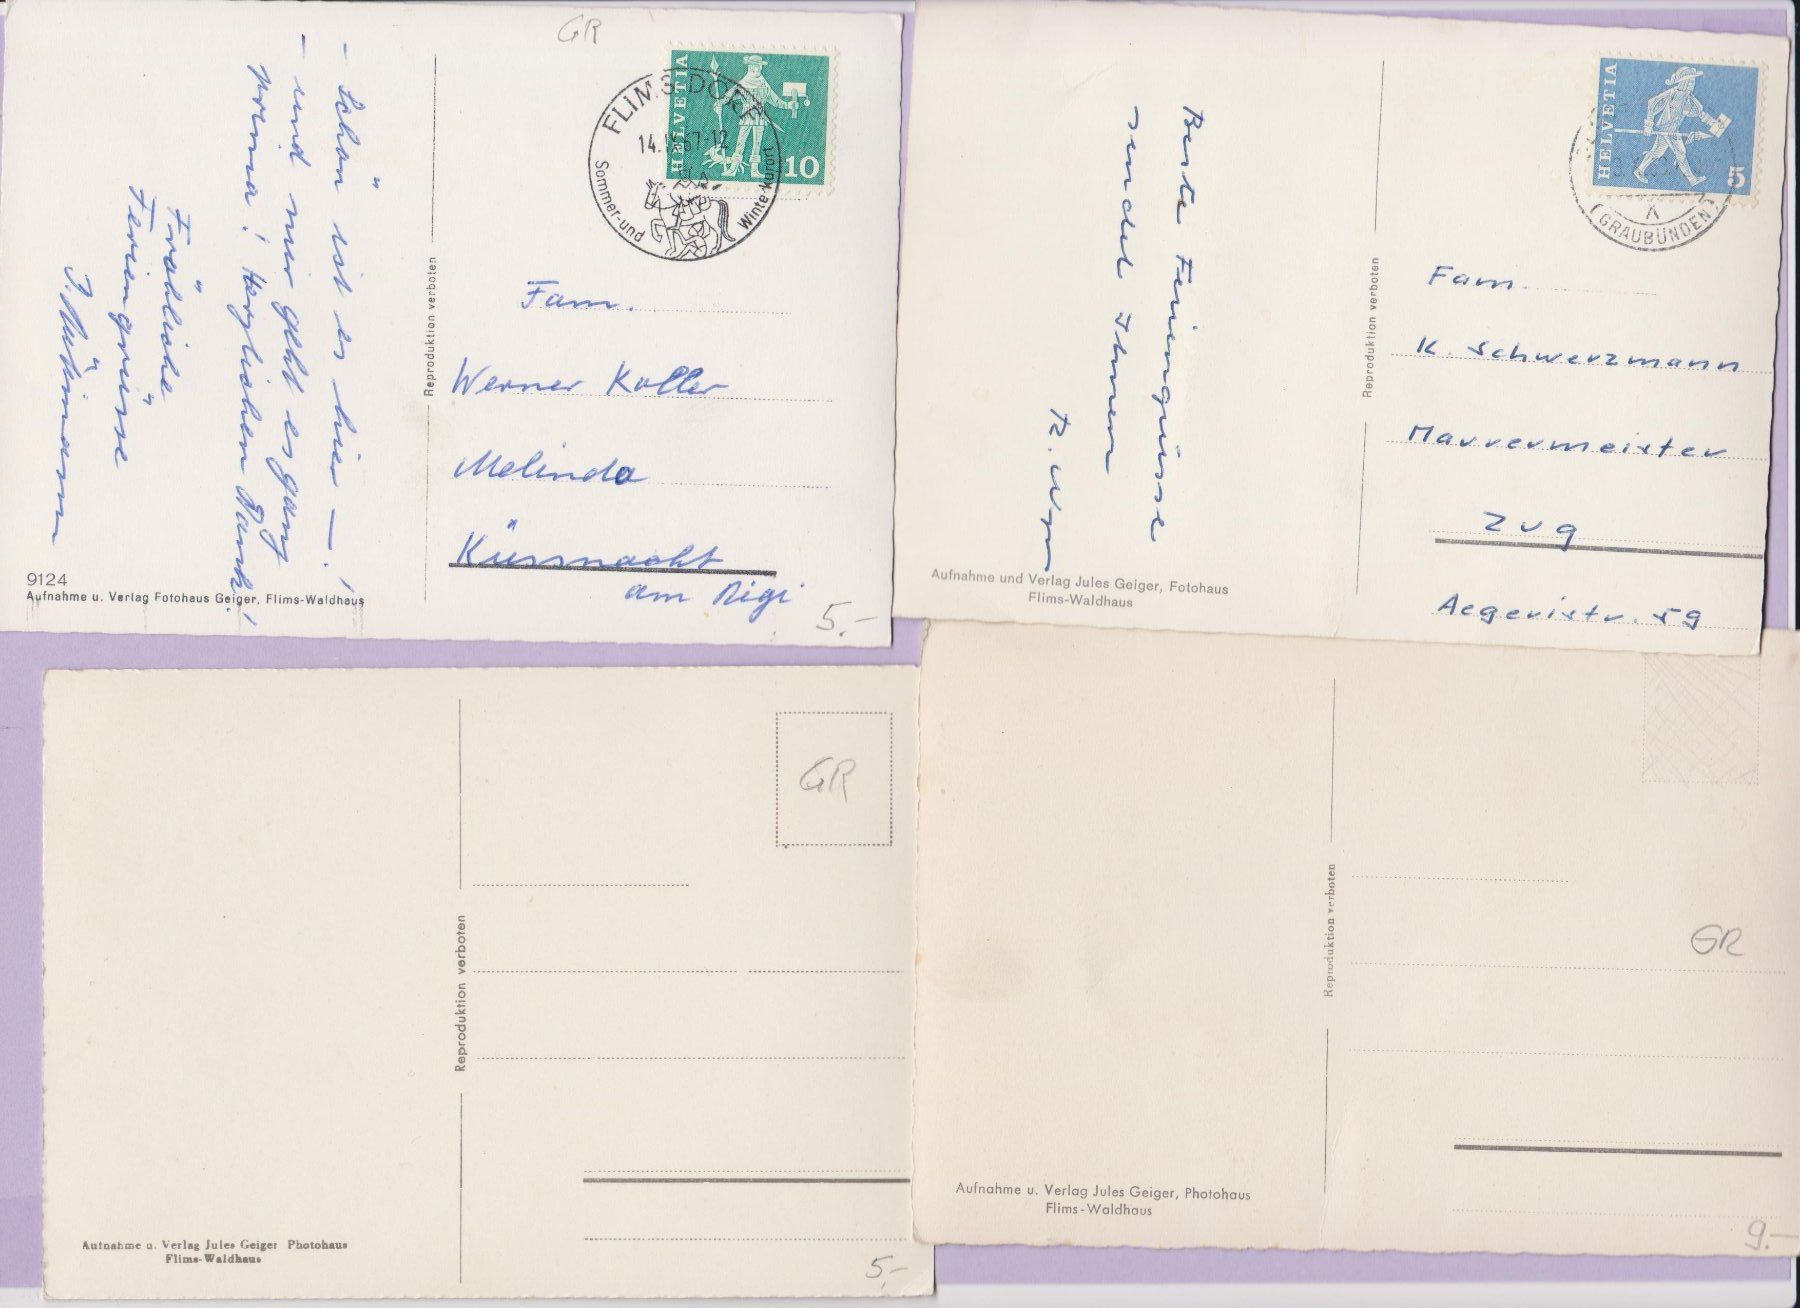 GR
HELVETIA
10
FLIMS DORF
14.IX.67-12
Sommer-und
Winterkurort
- Schön ist es hier - !
- und mir geht es ganz
prima! Herzlichen Dank!
Fröhliche
Feriengrüsse
Reproduktion verboten
Fam.
Werner Koller
Melinda
Küssnacht
am Rigi
5.-
9124
Aufnahme u. Verlag Fotohaus Geiger, Flims-Waldhaus
HELVETIA
5
(GRAUBÜNDEN)
Beste Feriengrüsse
sendet Ihnen
Reproduktion verboten
Fam.
K. Schwerzmann
Maurermeister
Zug
Aegeristr. 59
Aufnahme und Verlag Jules Geiger, Fotohaus
Flims-Waldhaus
GR
Reproduktion verboten
Aufnahme u. Verlag Jules Geiger Photohaus
Flims-Waldhaus
5.-
Reproduktion verboten
GR
Aufnahme u. Verlag Jules Geiger, Photohaus
Flims-Waldhaus
9.-